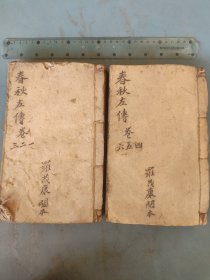 春秋左傳卷
三二一
羅茂康閱本
春秋左傳卷
六五四
羅茂康閱本